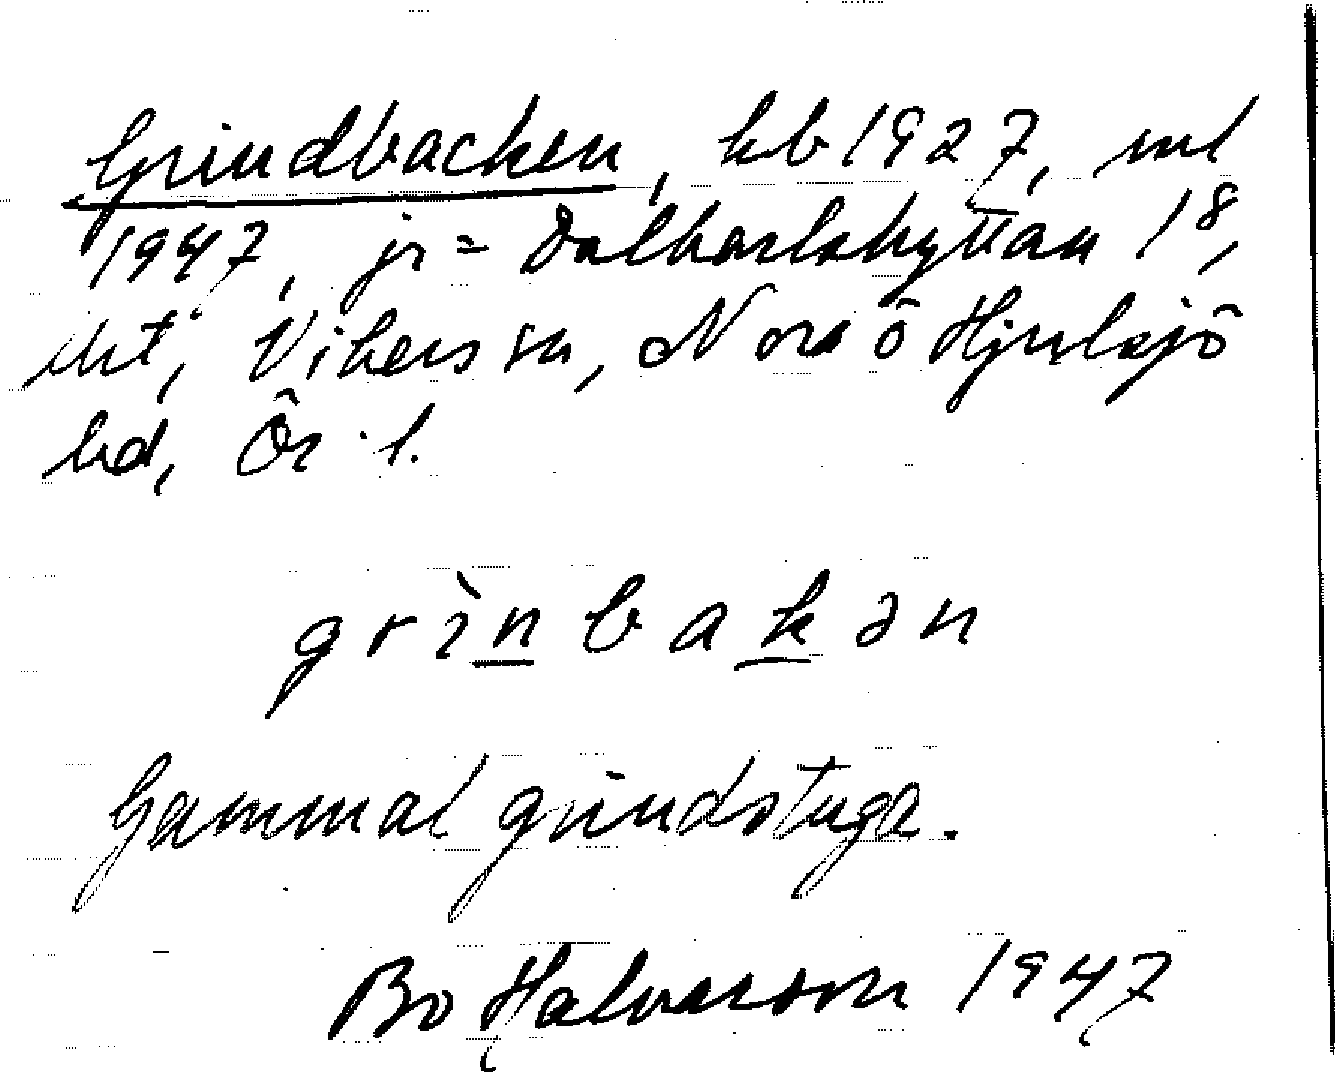 Grindbacken, kb 1927, ml
1947, jr = Dalkarlshyttan 1⁸,
Vikers sn, Nora ö Hjulsjö
bd, Ör. l.
grìnbakən
Gammal grindstuga.
Bo Halvarson 1947